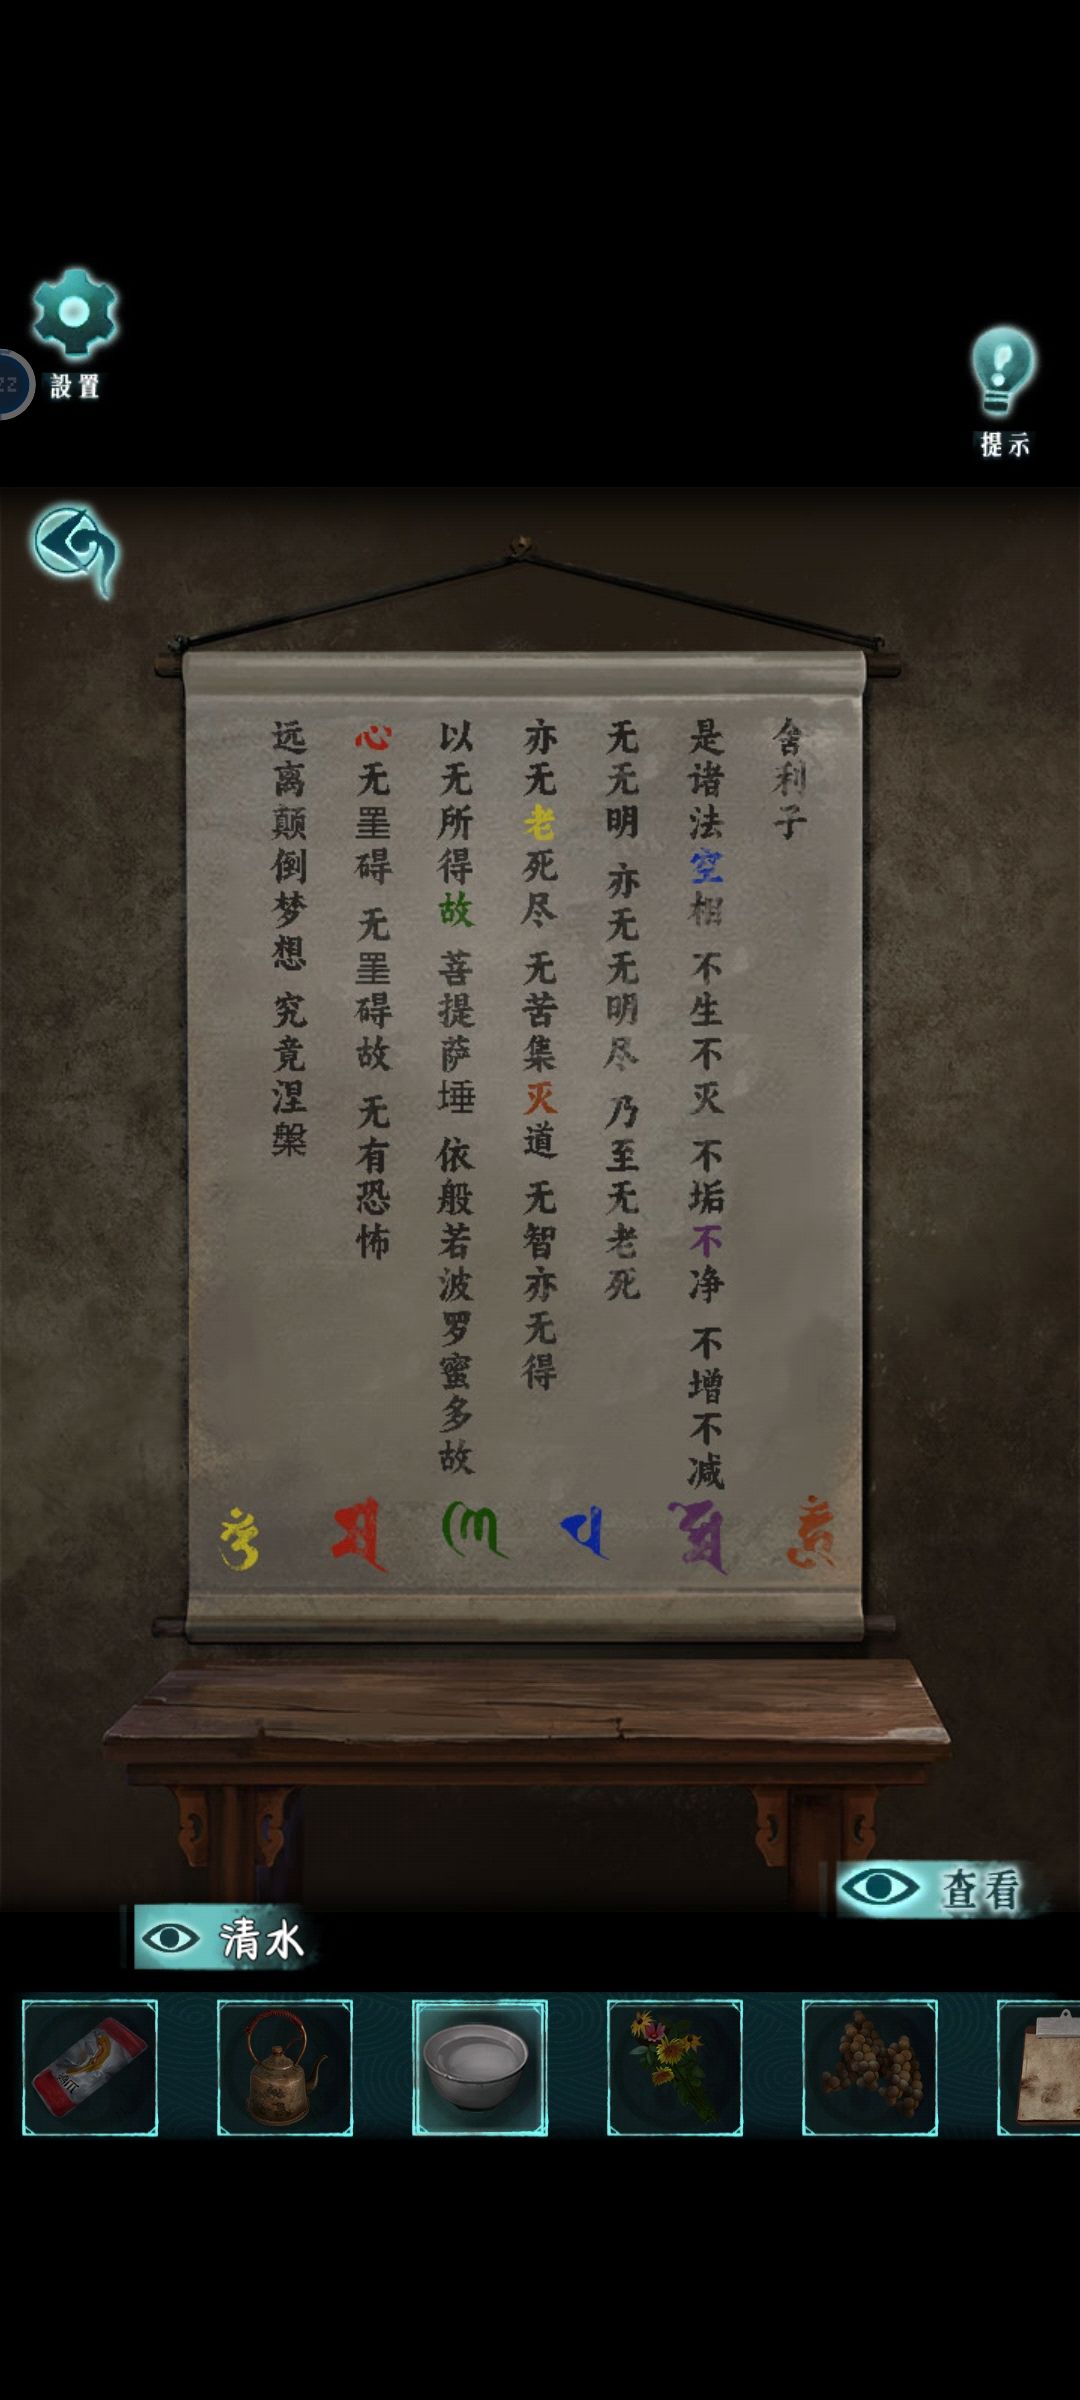 設置
提示
舍利子
是诸法空相 不生不灭 不垢不净 不增不减
无无明 亦无无明尽 乃至无老死
亦无老死尽 无苦集灭道 无智亦无得
以无所得故 菩提萨埵 依般若波罗蜜多故
心无罣碍 无罣碍故 无有恐怖
远离颠倒梦想 究竟涅槃
查看
清水